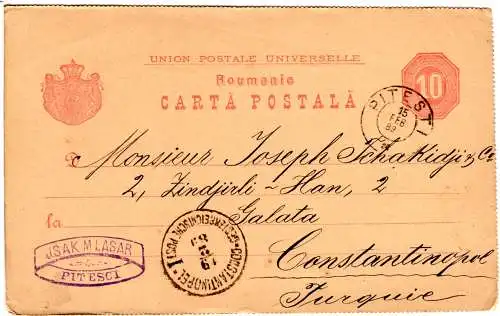 UNION POSTALE UNIVERSELLE
Roumanie
CARTĂ POSTALĂ
10
PITESTI
15
FEB
89
Monsieur Joseph Tchakidji & Co
2, Zindjirli-Han, 2
la Galata
Constantinopel
Turquie
ISAK M LASAR
PITESCI
CONSTANTINOPEL
OESTERREICHISCHE POST
19
2